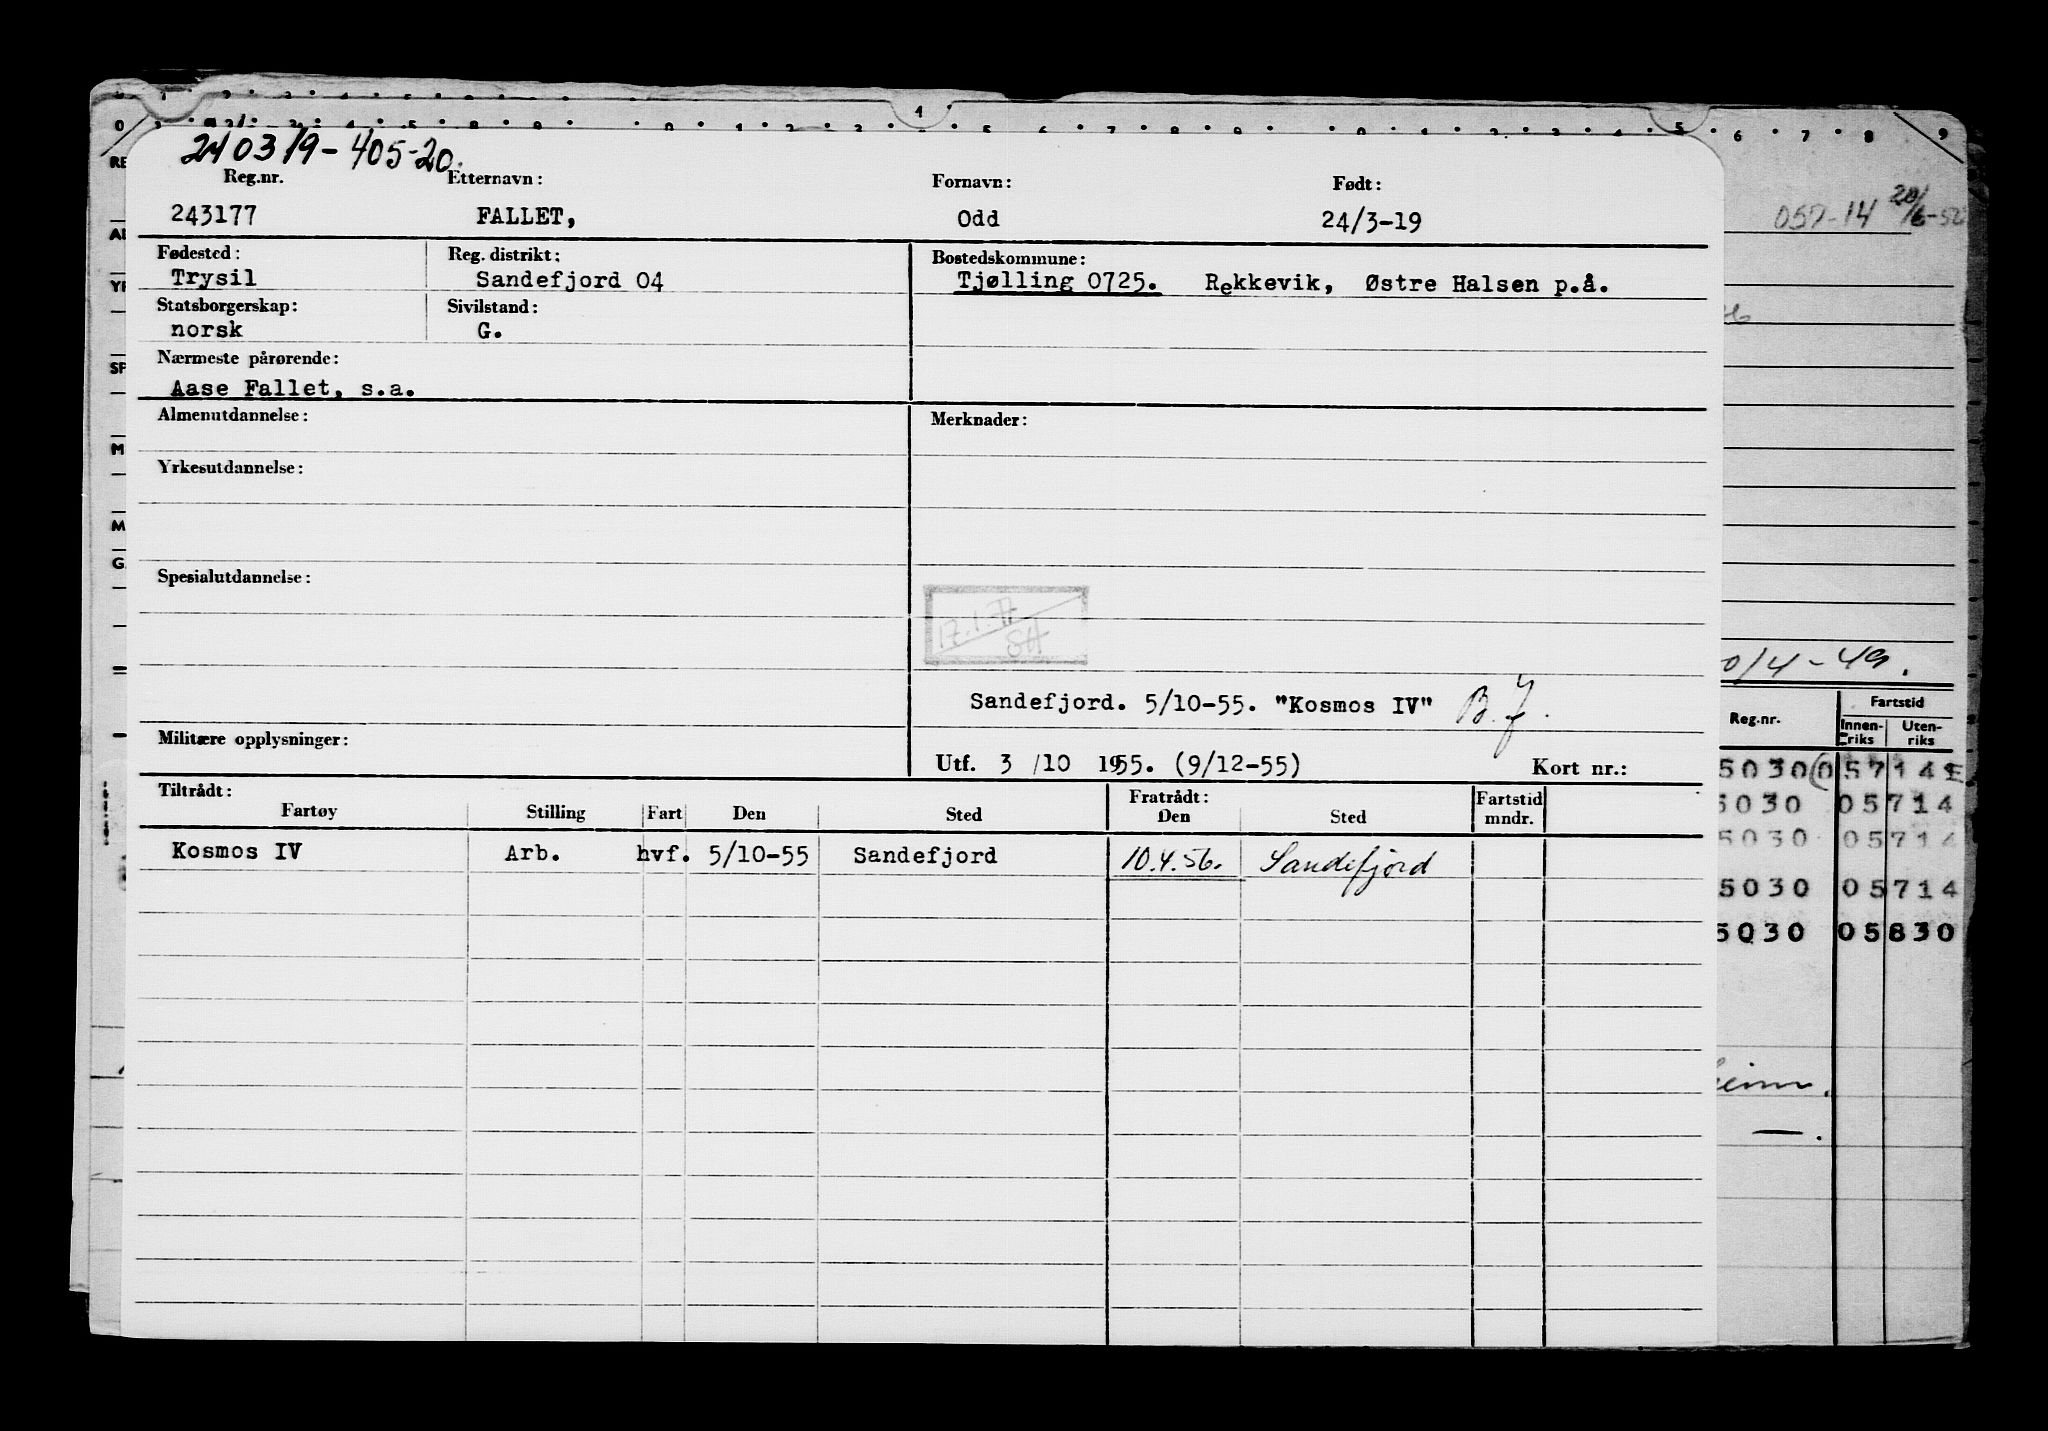 240319-405-20.
Reg.nr. Etternavn: Fornavn: Født:
243177 FALLET, Odd 24/3-19
Fødested: Reg. distrikt: Bostedskommune:
Trysil Sandefjord 04 Tjølling 0725. Rekkevik, Østre Halsen p.å.
Statsborgerskap: Sivilstand:
norsk G.
Nærmeste pårørende:
Aase Fallet, s.a.
Almenutdannelse: Merknader:
Yrkesutdannelse:
Spesialutdannelse:
17.1.77
SH
Sandefjord. 5/10-55. "Kosmos IV" B.J.
Militære opplysninger:
Utf. 3 /10 1955. (9/12-55) Kort nr.:
Tiltrådt: Fratrådt: Fartstid
Fartøy Stilling Fart Den Sted Den Sted mndr.
Kosmos IV Arb. hvf. 5/10-55 Sandefjord 10.4.56. Sandefjord
057-14 20/6-52
0/4-49.
Reg.nr. Fartstid
Innen-riks Uten-riks
5030 05714
5030 05714
5030 05714
5030 05714
5030 05830